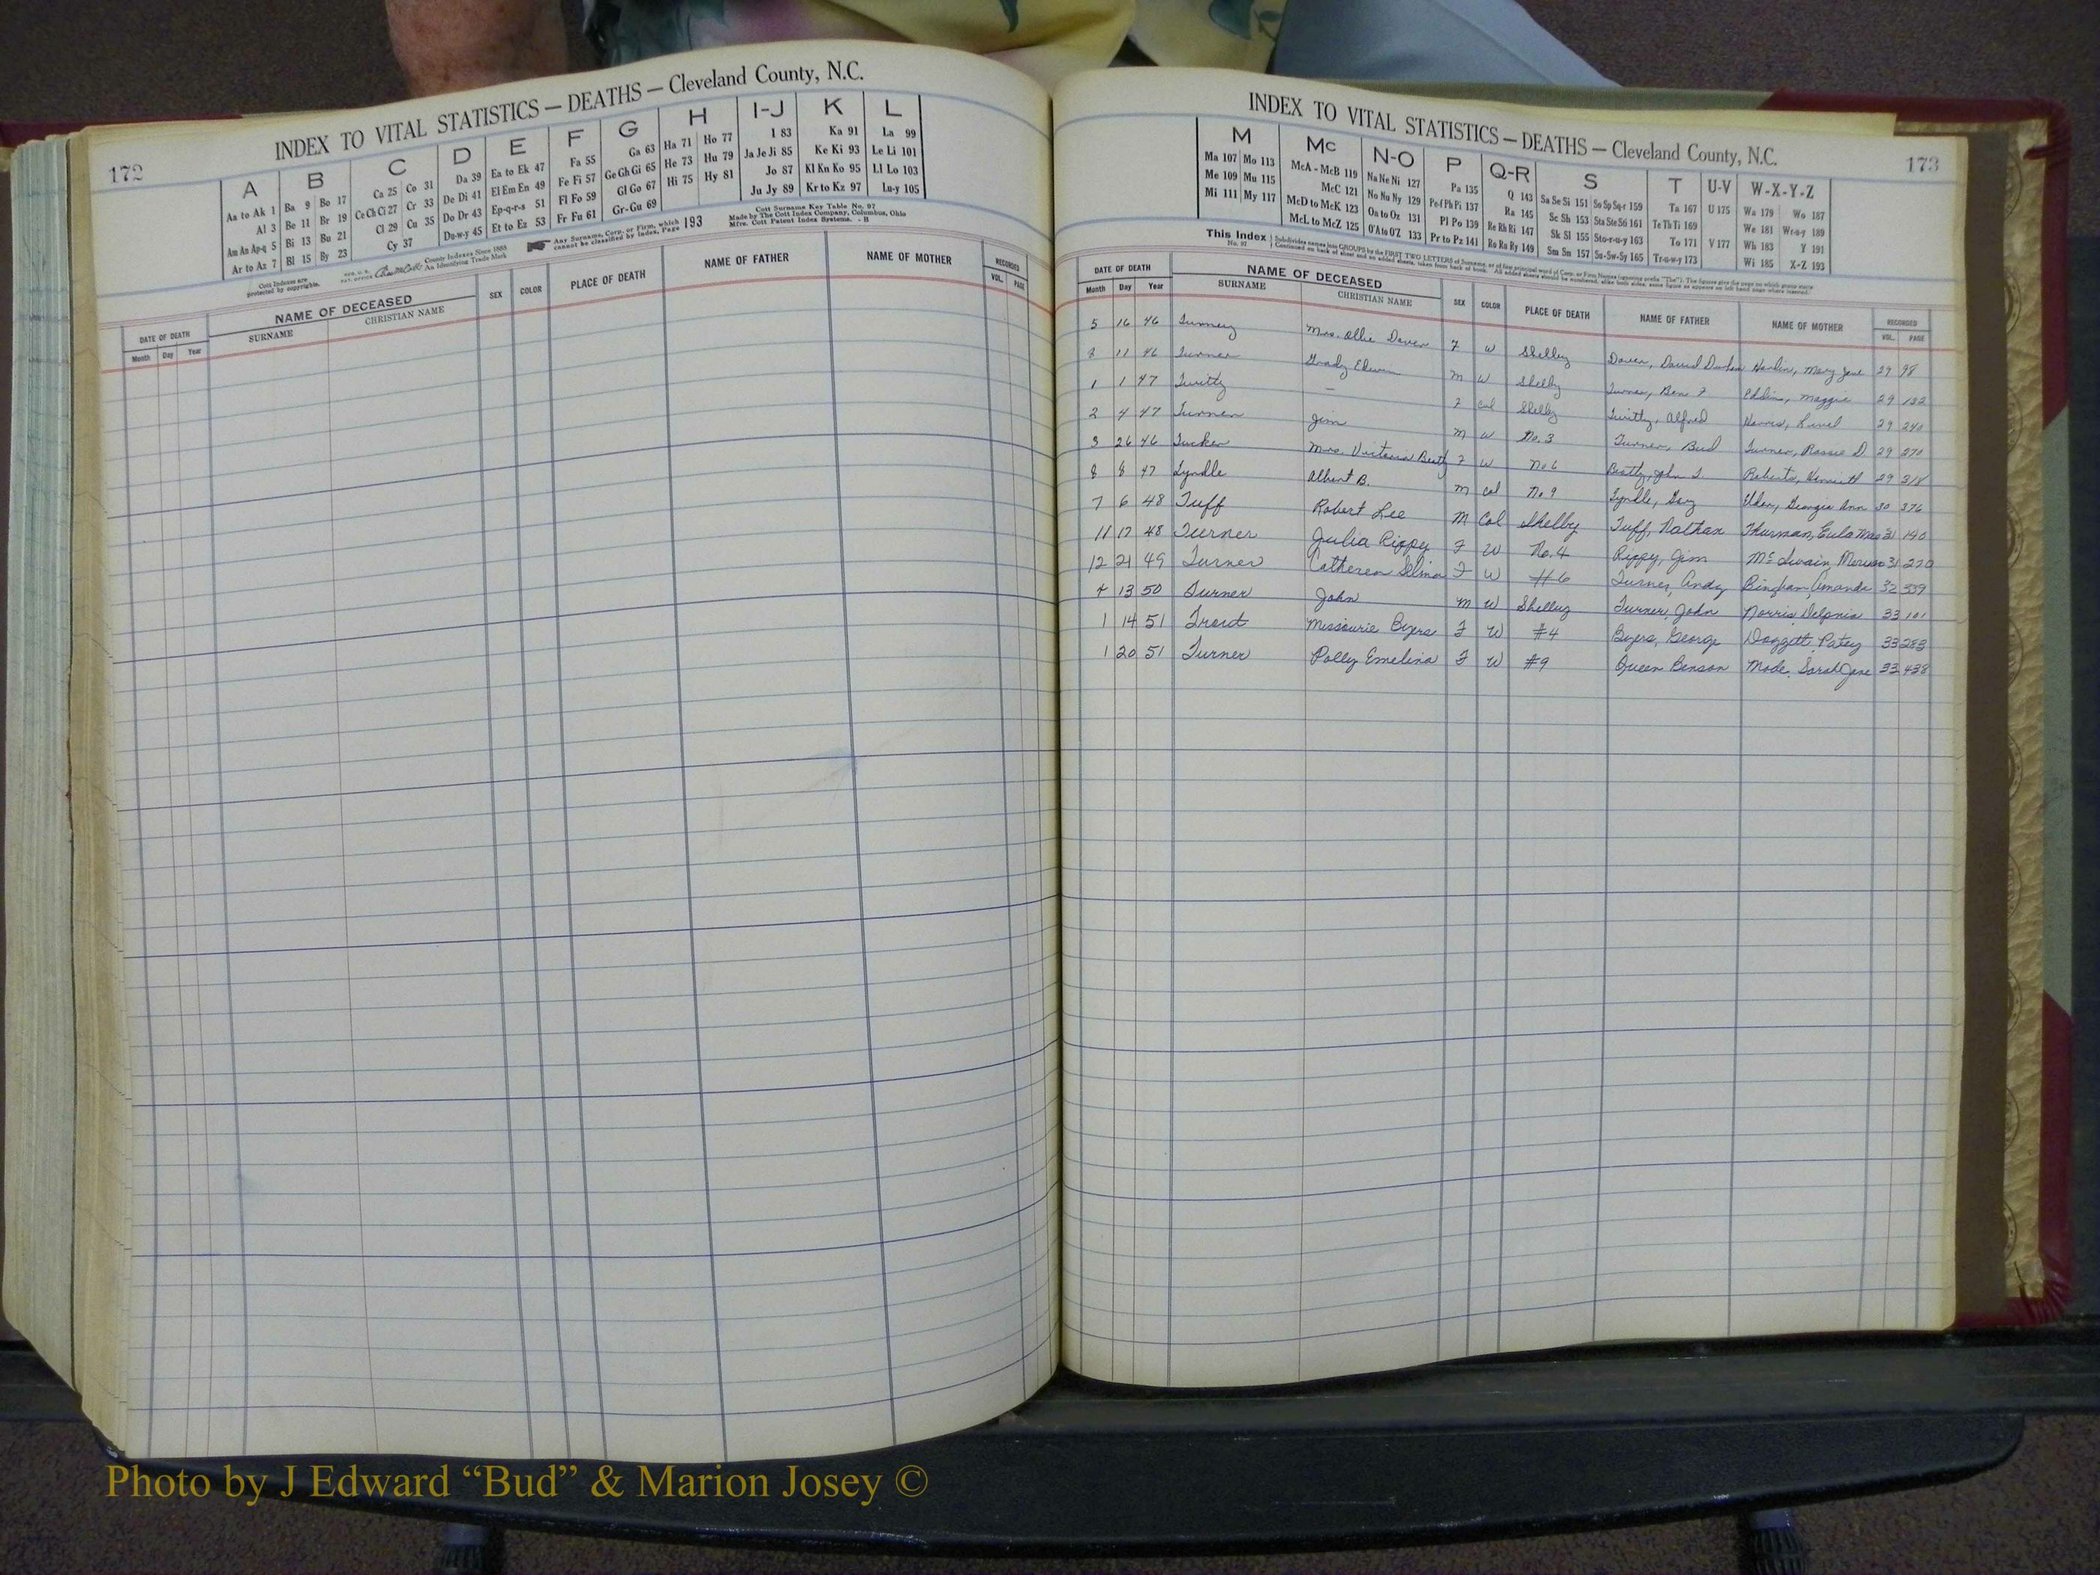 172
INDEX TO VITAL STATISTICS — DEATHS — Cleveland County, N.C.
A B C D E F G H I-J K L
Aa to Ak 1 Ba 9 Bo 17 Ca 25 Co 31 Da 39 Ea to Ek 47 Fa 55 Ga 63 Ha 71 Ho 77 I 83 Ka 91 La 99
Al 3 Be 11 Br 19 Ce Ch Ci 27 Cr 33 De Di 41 El Em En 49 Fe Fi 57 Ge Gh Gi 65 He 73 Hu 79 Ja Je Ji 85 Ke Ki 93 Le Li 101
Am An Ap-q 5 Bi 13 Bu 21 Cl 29 Cu 35 Do Dr 43 Ep-q-r-s 51 Fl Fo 59 Gl Go 67 Hi 75 Hy 81 Jo 87 Kl Kn Ko 95 Ll Lo 103
Ar to Az 7 Bl 15 By 23 Cy 37 Du-w-y 45 Et to Ez 53 Fr Fu 61 Gr-Gu 69 Ju Jy 89 Kr to Kz 97 Lu-y 105
Cott Indexes are protected by copyrights. County Indexes Since 1888 An Identifying Trade Mark
Any Surname, Corp. or Firm, which cannot be classified by Index, Page 193
Cott Surname Key Table No. 97
Made by The Cott Index Company, Columbus, Ohio
Mfrs. Cott Patent Index Systems. - B
DATE OF DEATH NAME OF DECEASED SEX COLOR PLACE OF DEATH NAME OF FATHER NAME OF MOTHER RECORDED
Month Day Year SURNAME CHRISTIAN NAME VOL. PAGE
INDEX TO VITAL STATISTICS — DEATHS — Cleveland County, N.C.
173
M Mc N-O P Q-R S T U-V W-X-Y-Z
Ma 107 Mo 113 McA - McB 119 Na Ne Ni 127 Pa 135 Q 143 Sa Se Si 151 So Sp Sq-r 159 Ta 167 U 175 Wa 179 Wo 187
Me 109 Mu 115 McC 121 No Nu Ny 129 Pe-f Ph Pi 137 Ra 145 Sc Sh 153 Sta Ste Sti 161 Te Th Ti 169 We 181 Wr-u-y 189
Mi 111 My 117 McD to McK 123 Oa to Oz 131 Pl Po 139 Re Rh Ri 147 Sk Sl 155 Sto-r-u-y 163 To 171 V 177 Wh 183 Y 191
McL to McZ 125 O'A to O'Z 133 Pr to Pz 141 Ro Ru Ry 149 Sm Sn 157 Su-Sw-Sy 165 Tr-u-w-y 173 Wi 185 X-Z 193
This Index No. 97
DATE OF DEATH NAME OF DECEASED SEX COLOR PLACE OF DEATH NAME OF FATHER NAME OF MOTHER RECORDED
Month Day Year SURNAME CHRISTIAN NAME VOL. PAGE
5 16 46 Turney Mrs. Ollie Dover F W Shelby Dover, David Durham Hardin, Mary Jane 29 98
8 11 46 Turner Grady Edwin M W Shelby Turner, Ben F Maggie 29 132
1 1 47 Twitty — F Col Shelby Twitty, Alfred 29 240
2 4 47 Turner Jim M W No. 3 Turner, Bud Turner, D 29 270
3 26 46 Tucker Mrs. Victoria Beatty F W No 6 Beatty, John Roberts, 29 318
8 8 47 Tyndle Albert B. M Col No 9 Tyndle, Georgia Ann 30 376
7 6 48 Tuff Robert Lee M Col Shelby Tuff, Nathan Thurman, Eula Mae 31 140
11 17 48 Turner Julia Rippy F W No. 4 Rippy, Jim McSwain, 31 270
12 21 49 Turner Catheren Selina F W #6 Turner, Andy Bingham, Amanda 32 559
4 13 50 Turner John M W Shelby Turner, John Norris, Delphia 33 101
1 14 51 Trout Missourie Byers F W #4 Byers, George Doggett, Patsy 33 283
1 20 51 Turner Polly Emelina F W #9 Queen Benson Mode, Sarah Jane 33 438
Photo by J Edward “Bud” & Marion Josey ©